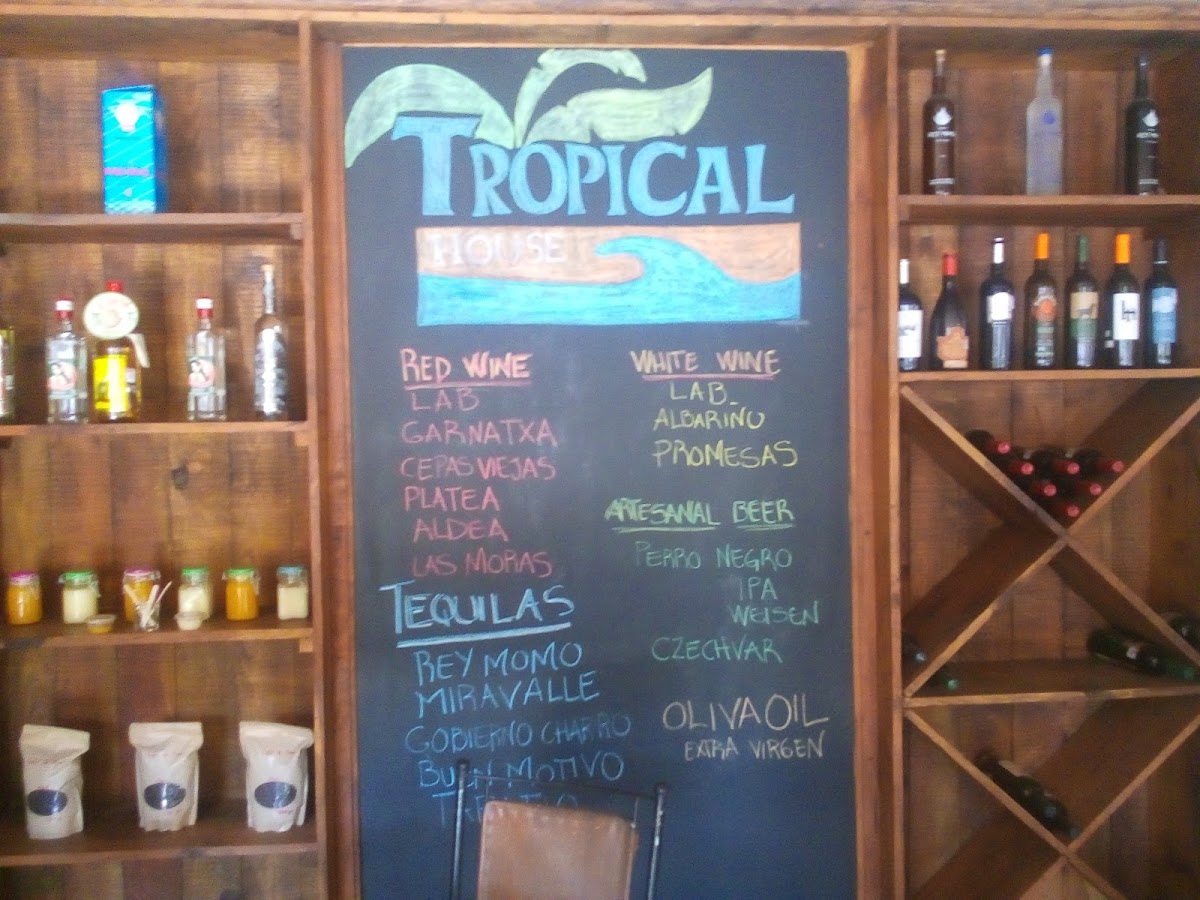 TROPICAL
HOUSE
RED WINE
LAB
GARNATXA
CEPAS VIEJAS
PLATEA
ALDEA
LAS MORAS
TEQUILAS
REY MOMO
MIRAVALLE
GOBIERNO CHARRO
BUEN MOTIVO
WHITE WINE
LAB_
ALBARIÑO
PROMESAS
ARTESANAL BEER
PERRO NEGRO
IPA
WEISEN
CZECHVAR
OLIVA OIL
EXTRA VIRGEN